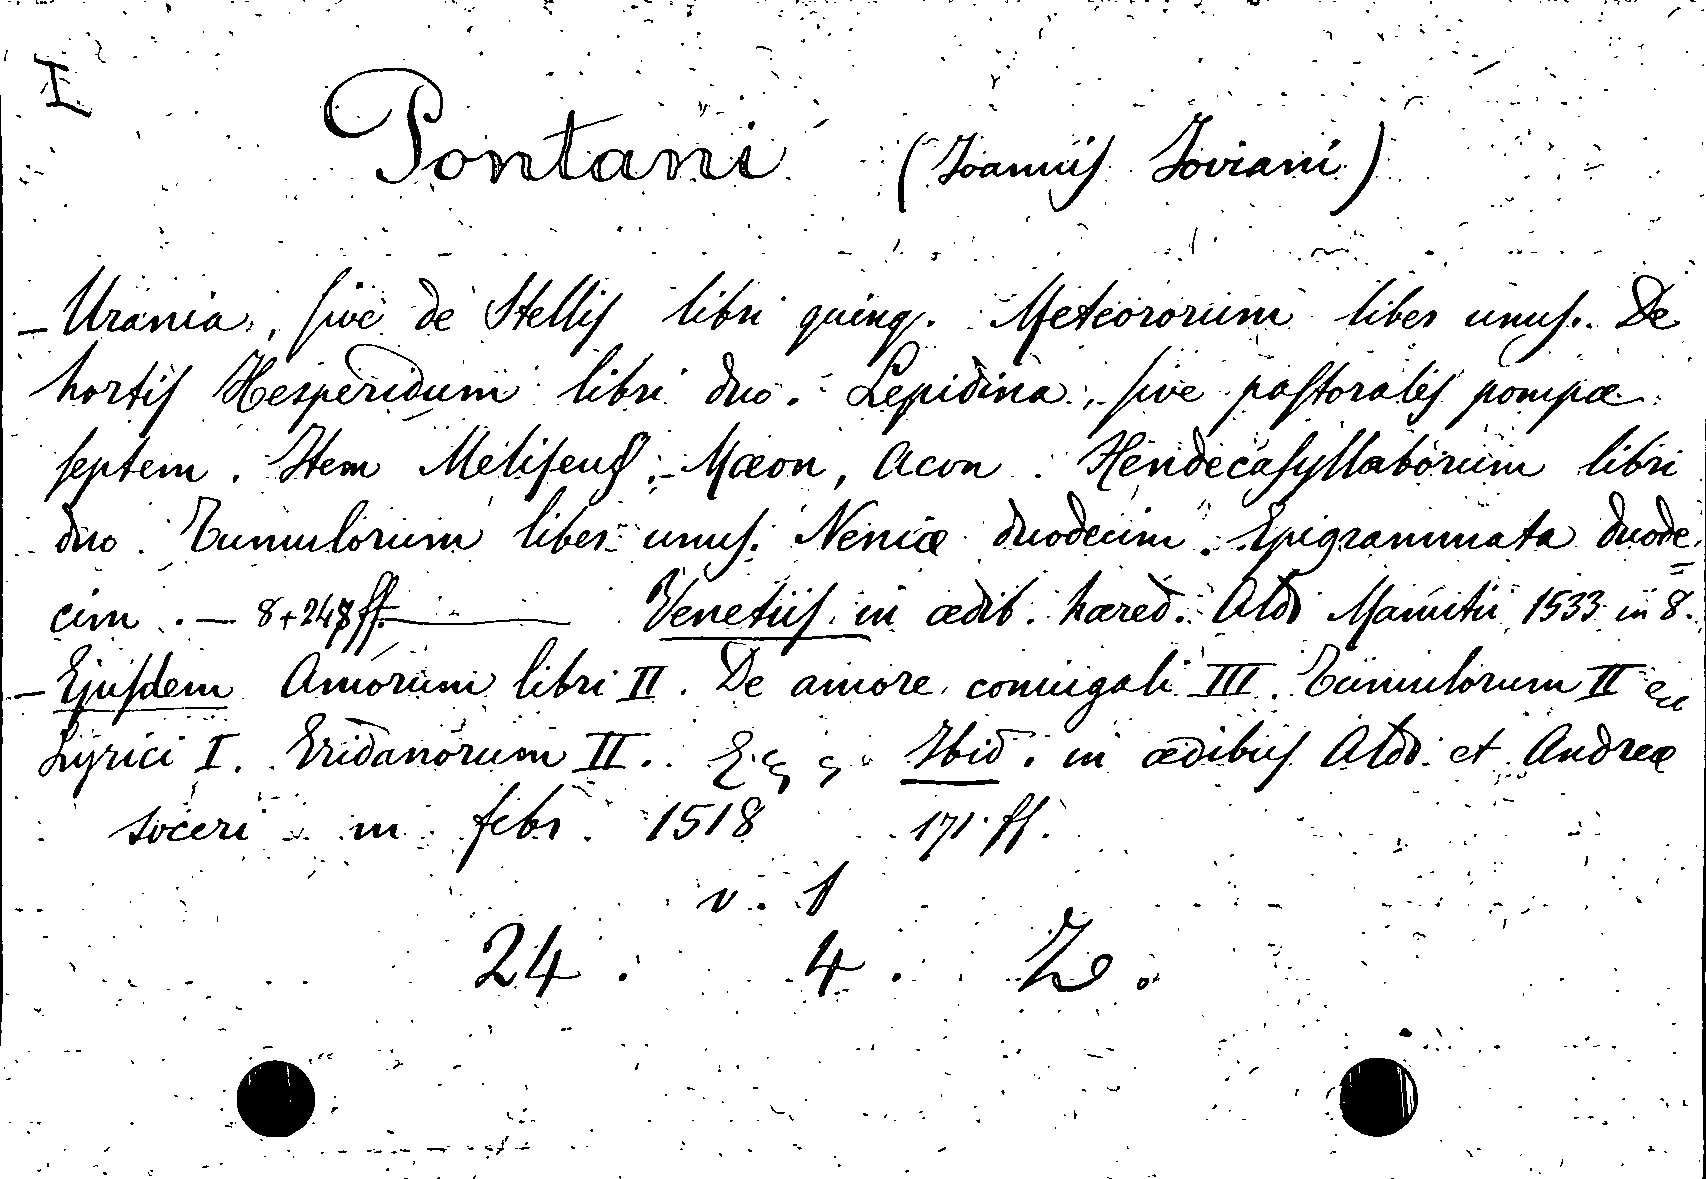 I
Pontani (Joannis Joviani)
- Urania, sive de Stellis libri quinq. Meteororum liber unus. De
hortis Hesperidum libri duo. Lepidina, sive pastorales pompæ
septem. Item Meliseus, Mæon, Acon. Hendecasyllaborum libri
duo. Tumulorum liber unus. Neniæ duodecim. Epigrammata duode=
cim. — 8+248 ff. — Venetiis in ædib. hæred. Aldi Manutii 1533 in 8.
- Ejusdem Amorum libri II. De amore coniugali III. Tumulorum II
Lyrici I. Eridanorum II. Ibid. in ædibus Aldi et Andreæ
soceri m febr. 1518 171 ff.
v. 1
24. 4. Z.